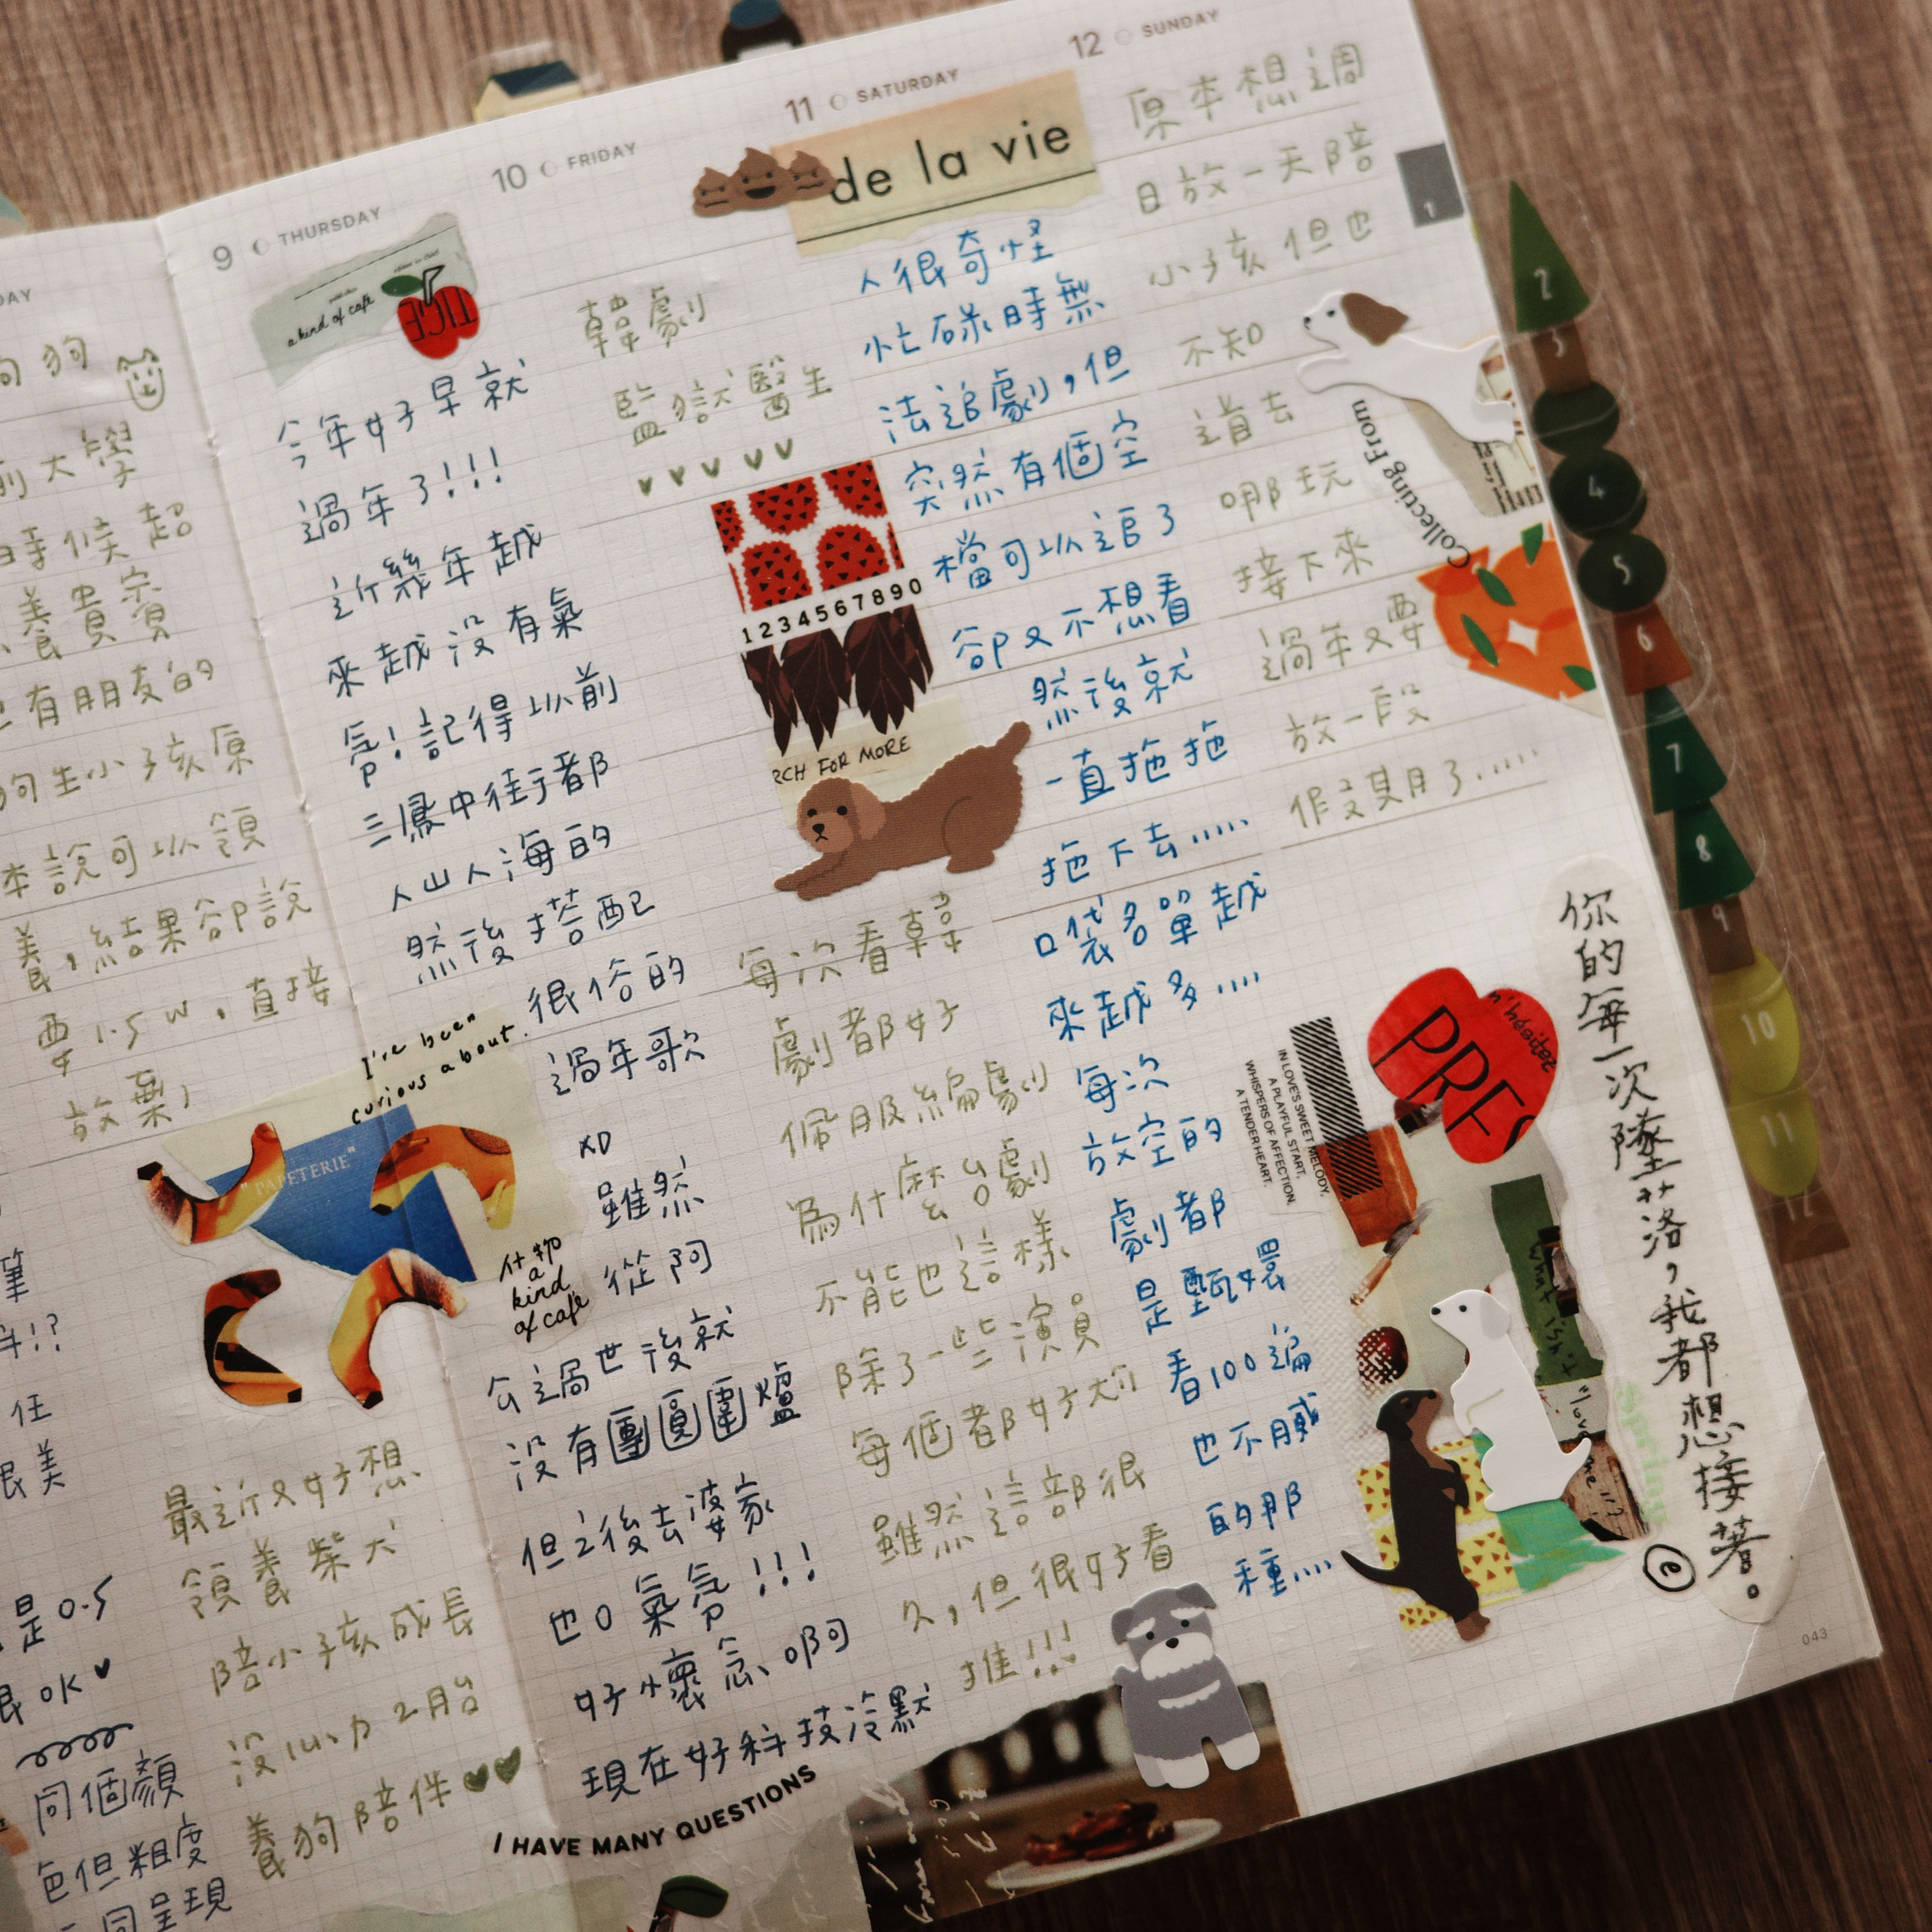 狗狗
前大學
時候超
養貴賓
有朋友的
狗生小孩原
本說可以領
養,結果卻說
要1.5W,直接
放棄!
最近又好想
領養柴犬
陪小孩成長
沒心力2月台
養狗陪伴
是0.5
很OK
同個顏
色但粗度
同呈現
I've been
curious about.
"PAPETERIE"
什物
a
kind
of cafe
9 THURSDAY
a kind of cafe
JUICE
今年好早就
過年了!!!
近幾年越
來越沒有氣
氛!記得以前
三鳳中街都
人山人海的
然後搭配
很俗的
過年歌
XD
雖然
從阿
公過世後就
沒有團圓圍爐
但之後去婆家
也0氣氛!!!
好懷念啊
現在好科技冷默
I HAVE MANY QUESTIONS
10 FRIDAY
韓劇
監獄醫生
1234567890
RCH FOR MORE
每次看韓
劇都好
佩服編劇
為什麼台劇
不能也這樣
除了一些演員
每個都好尬
雖然這部很
久,但很好看
推!!!
11 SATURDAY
de la vie
人很奇怪
忙碌時無
法追劇,但
突然有個空
檔可以追了
卻又不想看
然後就
一直拖拖
拖下去.....
口袋名單越
來越多....
每次
放空的
劇都
是甄嬛
看100遍
也不膩
的那
種...
12 SUNDAY
原本想週
日放一天陪
小孩但也
不知
道去
哪玩
接下來
過年又要
放一段
假期了.....
Collecting From
IN LOVE'S SWEET MELODY,
A PLAYFUL START,
WHISPERS OF AFFECTION,
A TENDER HEART.
PRES
你的每一次墜落,我都想接著。
043
1
2
3
4
5
6
7
8
9
10
11
12